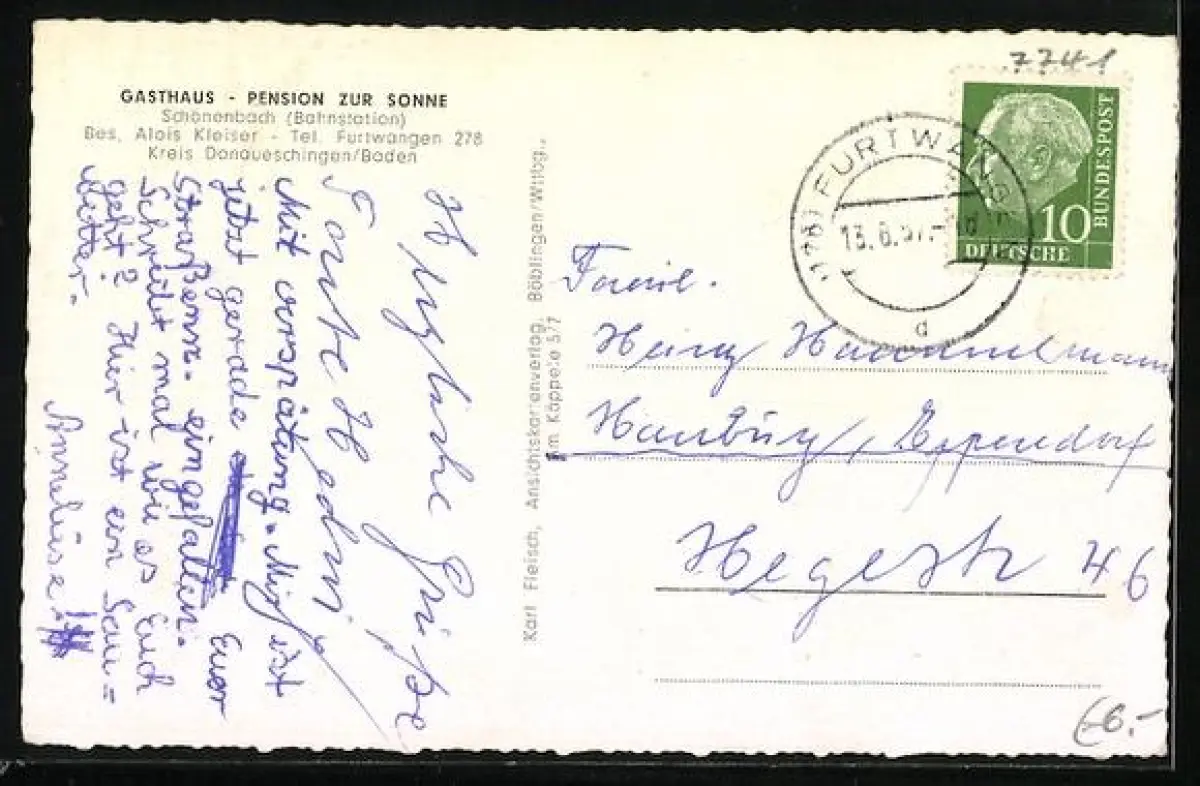 7741
GASTHAUS - PENSION ZUR SONNE
Schönenbach (Bahnstation)
Bes. Alois Kleiser - Tel. Furtwangen 278
Kreis Donaueschingen/Baden
Herzliche Grüße
Tante Hedwig
Mit verspätung. Mir ist
jetzt gerade Euer
Straßenn. eingefallen.
Schreibt mal wie es Euch
geht? Hier ist ein Sau=
wetter.
Anneliese!
Karl Fleisch, Ansichtskartenverlag, Böblingen/Wttbg.,
Am Käppele 577
FURTWANGEN
13.8.57.
d
BUNDESPOST
10
DEUTSCHE
Famil.
Heinz
Hamburg, Eppendorf
Hegestr 46
6.-